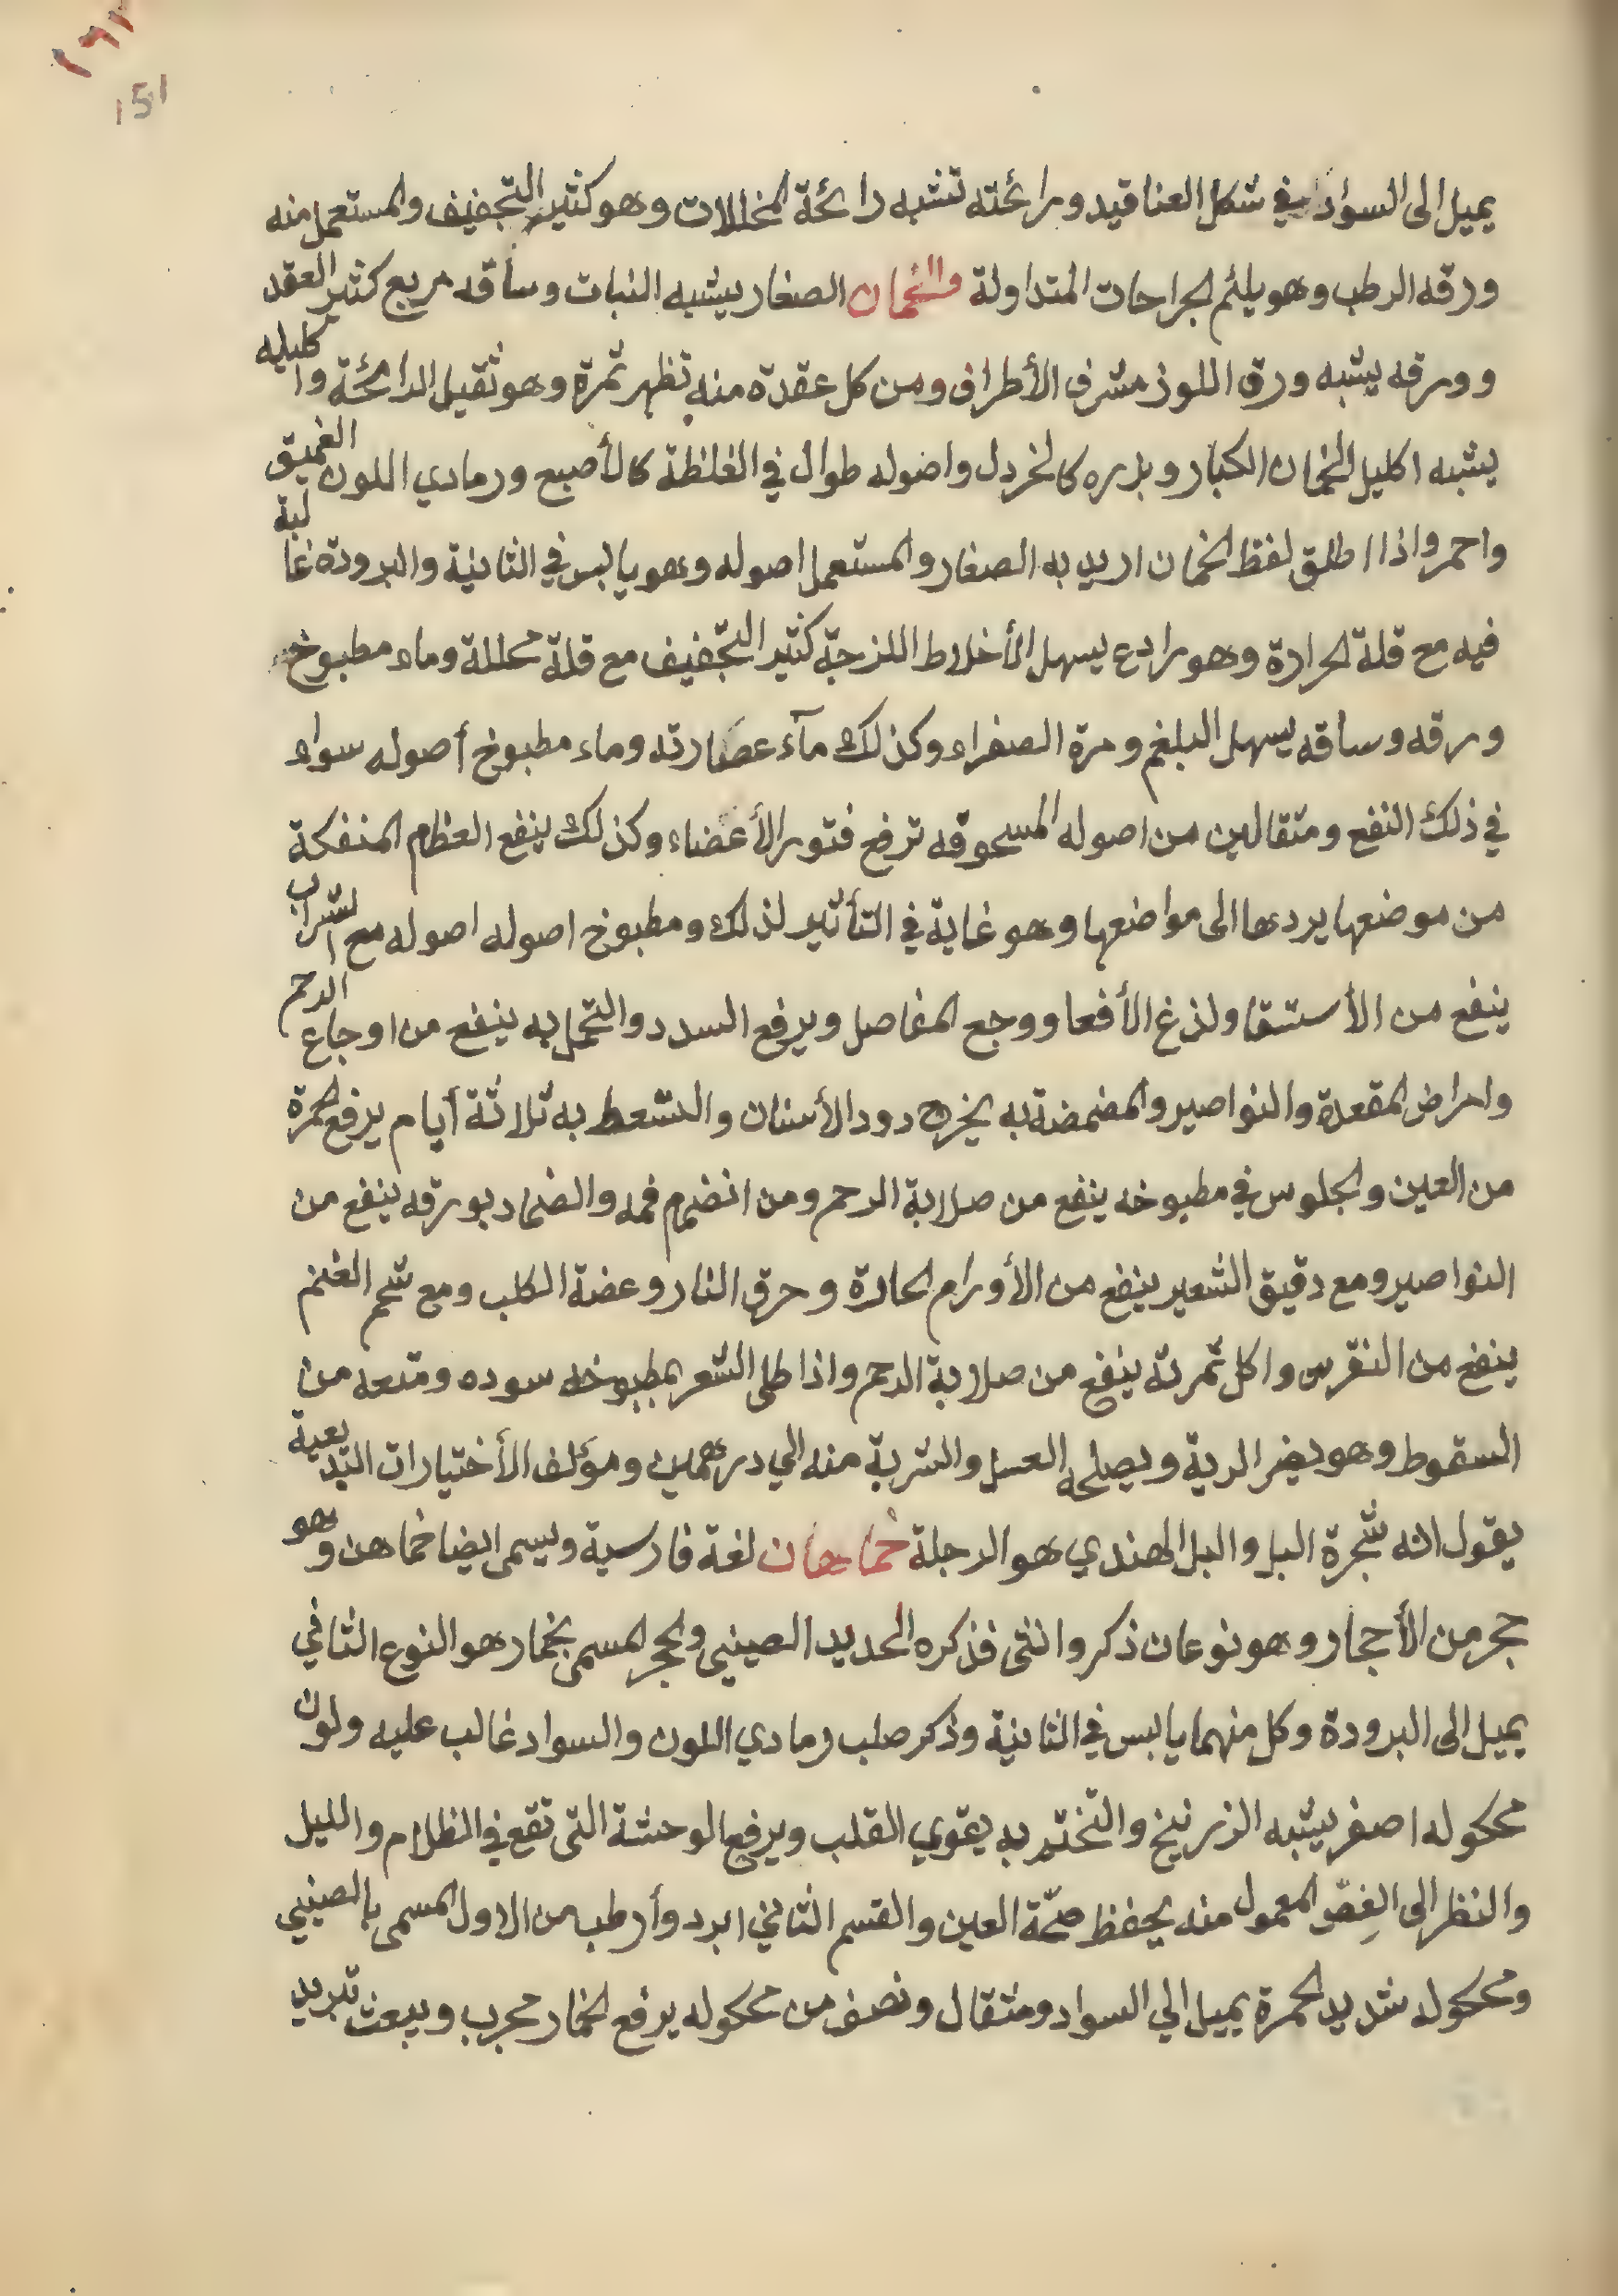 ١٦٢
151
يميل الى السواد في شكل العناقيد ورائحته تشبه رائحة المخللات وهو كثير التجفيف والمستعمل منه
ورقه الرطب وهو يلئم الجراحات المتداولة والخمان الصغار يشبه النبات وساقه مربع كثير العقد
وورقه يشبه ورق اللوز مشرف الأطراف ومن كل عقدة منه تظهر ثمرة وهو ثقيل الرائحة واكليله
يشبه اكليل الخمان الكبار وبزره كالخردل واضوله طوال في الغلظة كالأصبع ورمادي اللون الغميق
واحمر واذا اطلق لفظ الخمان اريد به الصغار والمستعمل اصوله وهو يابس في الثانية والبرودة غالبة
فيه مع قلة الحرارة وهو رادع يسهل الأخلاط اللزجة كثير التجفيف مع قلة محللة وماء مطبوخ
ورقه وساقه يسهل البلغم ومرة الصفراء وكذلك مآء عصارته وماء مطبوخ أصوله سواء
في ذلك النفع ومثقالين من اصوله المسحوقه ترفع فتور الأعضاء وكذلك ينفع العظام المنفكة
من موضعها يردها الى مواضعها وهو غاية في التأثير لذلك ومطبوخ اصوله اصوله مع الشراب
ينفع من الأستسقا ولذغ الأفعا ووجع المفاصل ويرفع السدد والتحمل به ينفع من اوجاع الرحم
وامراض المقعدة والنواصير والمضمضة به يخرج دود الأسنان والسعط به ثلاثة أيام يرفع الحمرة
من العين والجلوس في مطبوخه ينفع من صلابة الرحم ومن انضمام فمه والضماد بورقه ينفع من
النواصير ومع دقيق الشعير ينفع من الأورام الحارة وحرق النار وعضة الكلب ومع شحم الغنم
ينفع من النقرس واكل ثمرته ينفع من صلابة الرحم واذا طلى الشعر بمطبوخه سوده ومنعه من
السقوط وهو يضر الرية ويصلحه العسل والشربة منه الي درهمين ومؤلف الأختيارات البديعية
يقول انه شجرة البل والبل الهندي هو الرجلة خماهان لغة فارسية ويسمى ايضا خماهن وهو
حجر من الأحجار وهو نوعان ذكر وانثى فذكره الحديد الصيني والحجر المسمى بخمار هو النوع الثاني
يميل الى البرودة وكل منهما يابس في الثانية وذكر صلب رمادي اللون والسواد غالب عليه ولون
محكوله اصفر يشبه الزرنيخ والتختم به يقوي القلب ويرفع الوحشة التى تقع في الظلام والليل
والنظر الى الفِصّ المعمول منه يحفظ صحّة العين والقسم الثاني ابرد وأرطب من الاول المسمى بالصيني
ومحكوله شديد الحمرة يميل الي السواد ومثقال ونصف من محكوله يرفع الخمار مجرب ويبعث تبريد